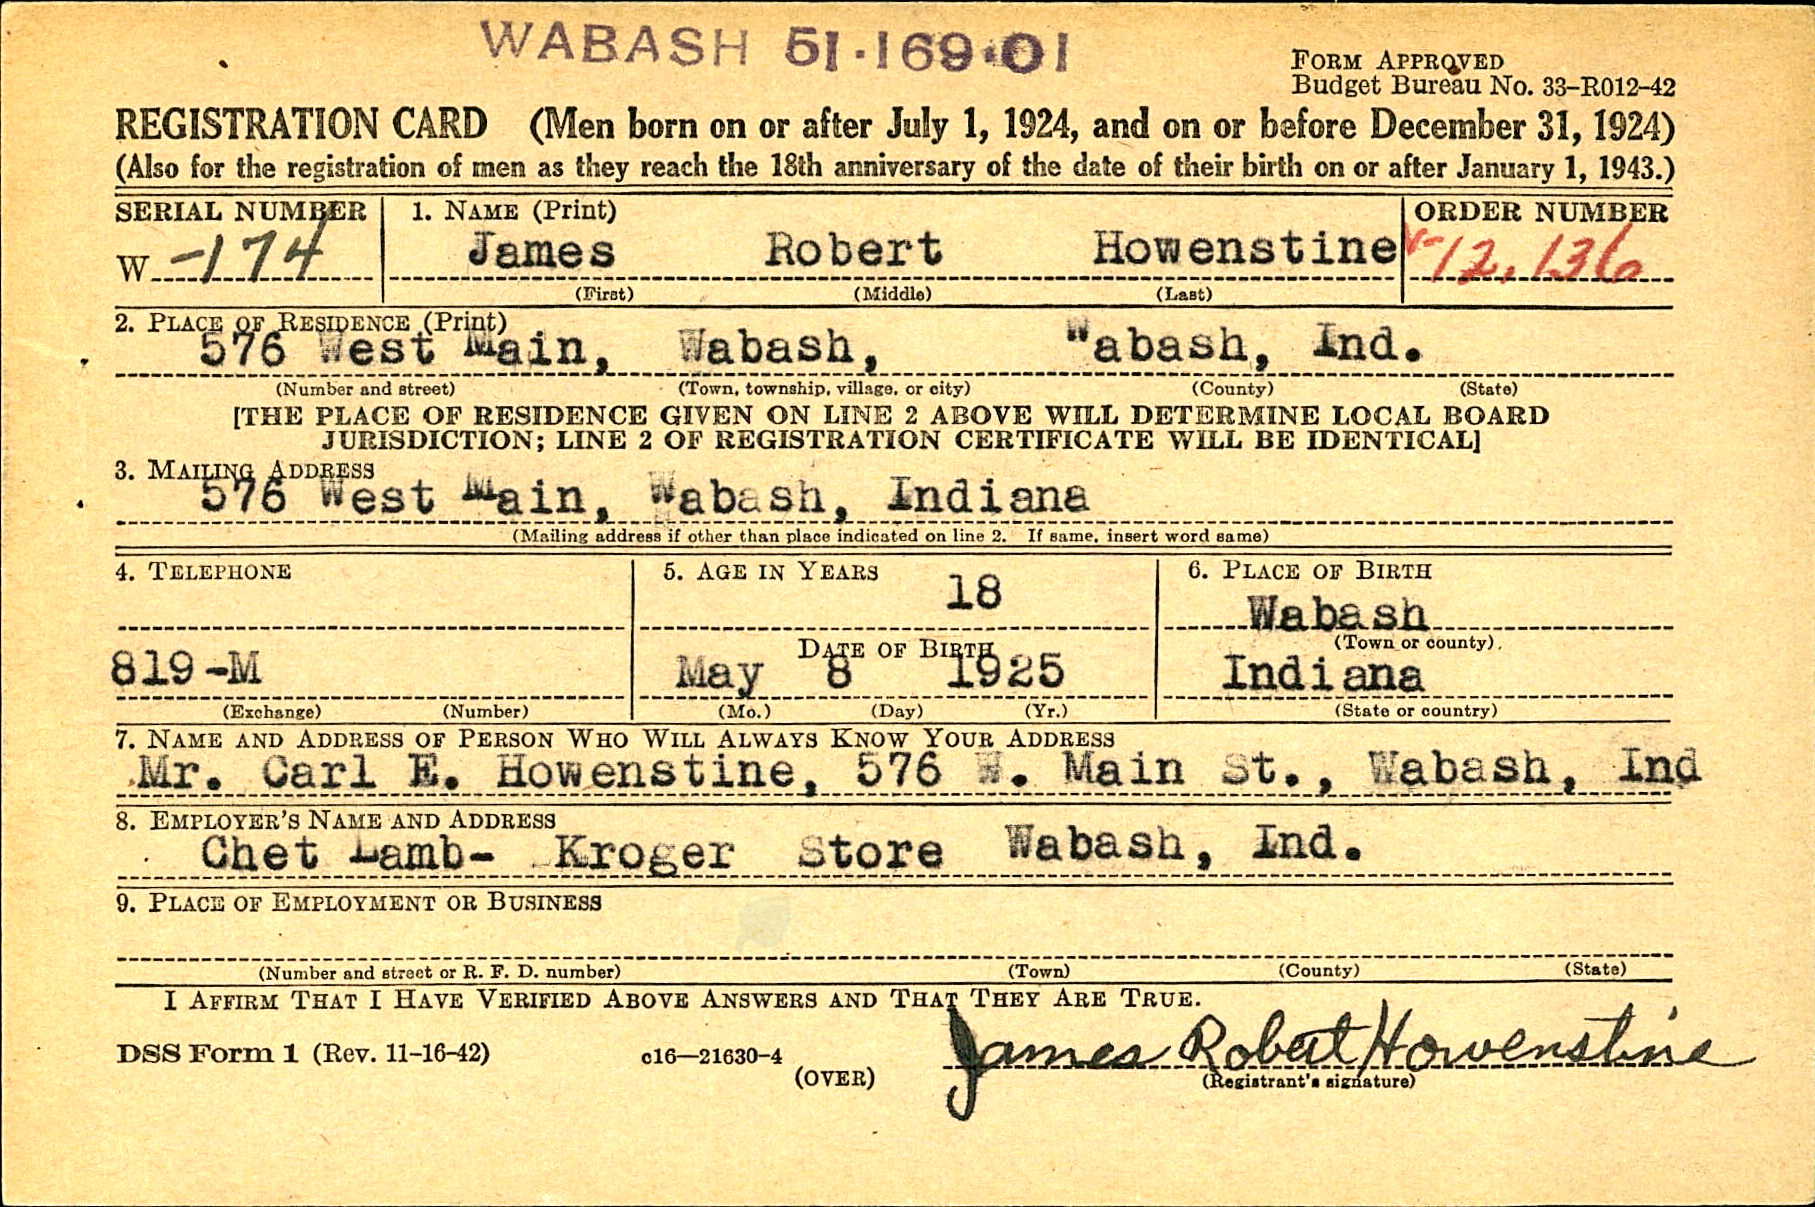 WABASH 51·169·01
FORM APPROVED
Budget Bureau No. 33–R012–42
REGISTRATION CARD (Men born on or after July 1, 1924, and on or before December 31, 1924)
(Also for the registration of men as they reach the 18th anniversary of the date of their birth on or after January 1, 1943.)
SERIAL NUMBER 1. NAME (Print) ORDER NUMBER
W -174 James Robert Howenstine 12,136
(First) (Middle) (Last)
2. PLACE OF RESIDENCE (Print)
576 West Main, Wabash, Wabash, Ind.
(Number and street) (Town, township, village, or city) (County) (State)
[THE PLACE OF RESIDENCE GIVEN ON LINE 2 ABOVE WILL DETERMINE LOCAL BOARD
JURISDICTION; LINE 2 OF REGISTRATION CERTIFICATE WILL BE IDENTICAL]
3. MAILING ADDRESS
576 West Main, Wabash, Indiana
(Mailing address if other than place indicated on line 2. If same, insert word same)
4. TELEPHONE 5. AGE IN YEARS 6. PLACE OF BIRTH
18 Wabash
DATE OF BIRTH (Town or county)
819-M May 8 1925 Indiana
(Exchange) (Number) (Mo.) (Day) (Yr.) (State or country)
7. NAME AND ADDRESS OF PERSON WHO WILL ALWAYS KNOW YOUR ADDRESS
Mr. Carl E. Howenstine, 576 W. Main St., Wabash, Ind
8. EMPLOYER'S NAME AND ADDRESS
Chet Lamb- Kroger Store Wabash, Ind.
9. PLACE OF EMPLOYMENT OR BUSINESS
(Number and street or R. F. D. number) (Town) (County) (State)
I AFFIRM THAT I HAVE VERIFIED ABOVE ANSWERS AND THAT THEY ARE TRUE.
DSS Form 1 (Rev. 11–16–42) c16—21630-4 James Robert Howenstine
(OVER) (Registrant's signature)